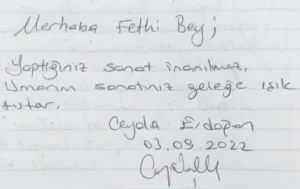 Merhaba Fethi Bey;
Yaptığınız sanat inanılmaz,
Umarım sanatınız geleğe ışık
tutar.
Ceyda Erdoğan
03.09.2022